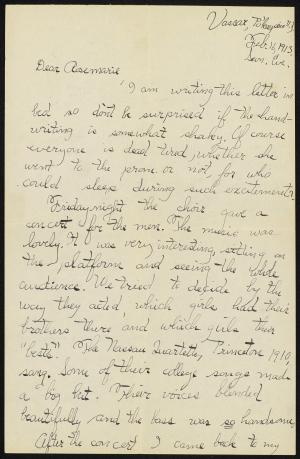 Vassar, Po'keepsie N.Y.
Feb. 16, 1913
Sun. Eve.
Dear Rosemarie
I am writing this letter in
bed so don't be surprised if the hand-
writing is somewhat shaky. Of course
everyone is dead tired, whether she
went to the prom or not for who
could sleep during such excitement?
Friday night the choir gave a
concert for the men. The music was
lovely. It was very interesting, sitting on
the platform and seeing the whole
audience. We tried to decide by the
way they acted, which girls had their
brothers there and which girls their
"bests." The Nassau Quartette, Princeton 1910,
sang. Some of their college songs made
a big hit. Their voices blended
beautifully and the bass was so handsome.
After the concert I came back to my